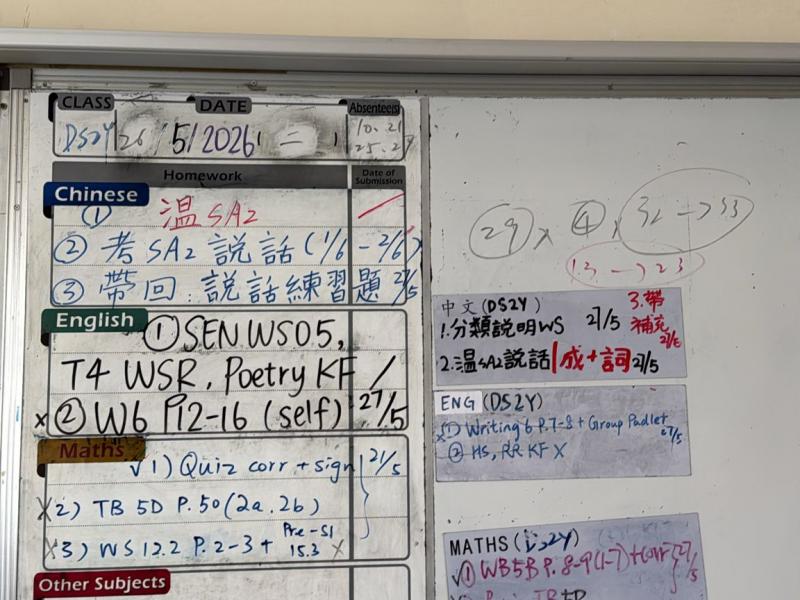 CLASS DATE Absentee(s)
DS2Y 26/5/2026 (二) 10.21
25.27
Homework Date of Submission
Chinese
① 温SA2
② 考SA2說話(1/6-2/6)
③ 帶回:說話練習題 27/5
English
① SEN WS05,
T4 WSR, Poetry KF /
x ② W6 P12-16 (self) 27/5
Maths
√ 1) Quiz corr + sign 21/5
x 2) TB 5D P.50 (2a.2b)
x 3) WS 12.2 P.2-3 + Pre-S1 15.3 x
Other Subjects
29 x 4, 32 → 33
13 → 23
中文(DS2Y)
1.分類説明WS 27/5
3.帶補充
2.温SA2説話 成+詞 27/5
ENG (DS2Y)
x① Writing 6 P.7-8 + Group Padlet 27/5
② HS, RR KF X
MATHS (DS2Y)
√① WB5B P.8-9(1-7)+corr 27/5